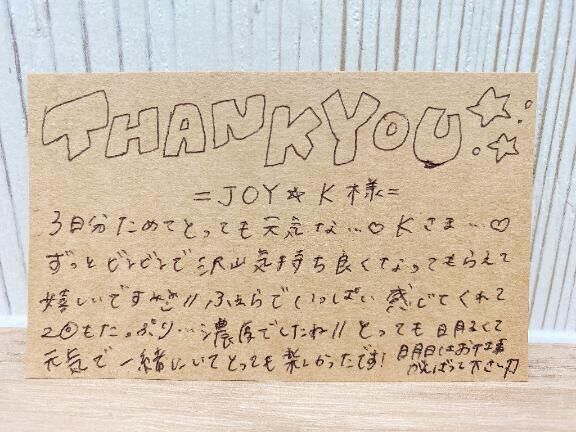 THANKYOU
=JOY☆K様=
3日分ためてとっても元気な…♡Kさま…♡
ずっとビンビンで沢山気持ち良くなってもらえて
嬉しいですっ!! ふぇらでいっぱい感じてくれて
2回もたっぷり…濃厚でしたね!! とっても明るくて
元気で一緒にいてとっても楽しかったです!
明日はお仕事
がんばって下さい